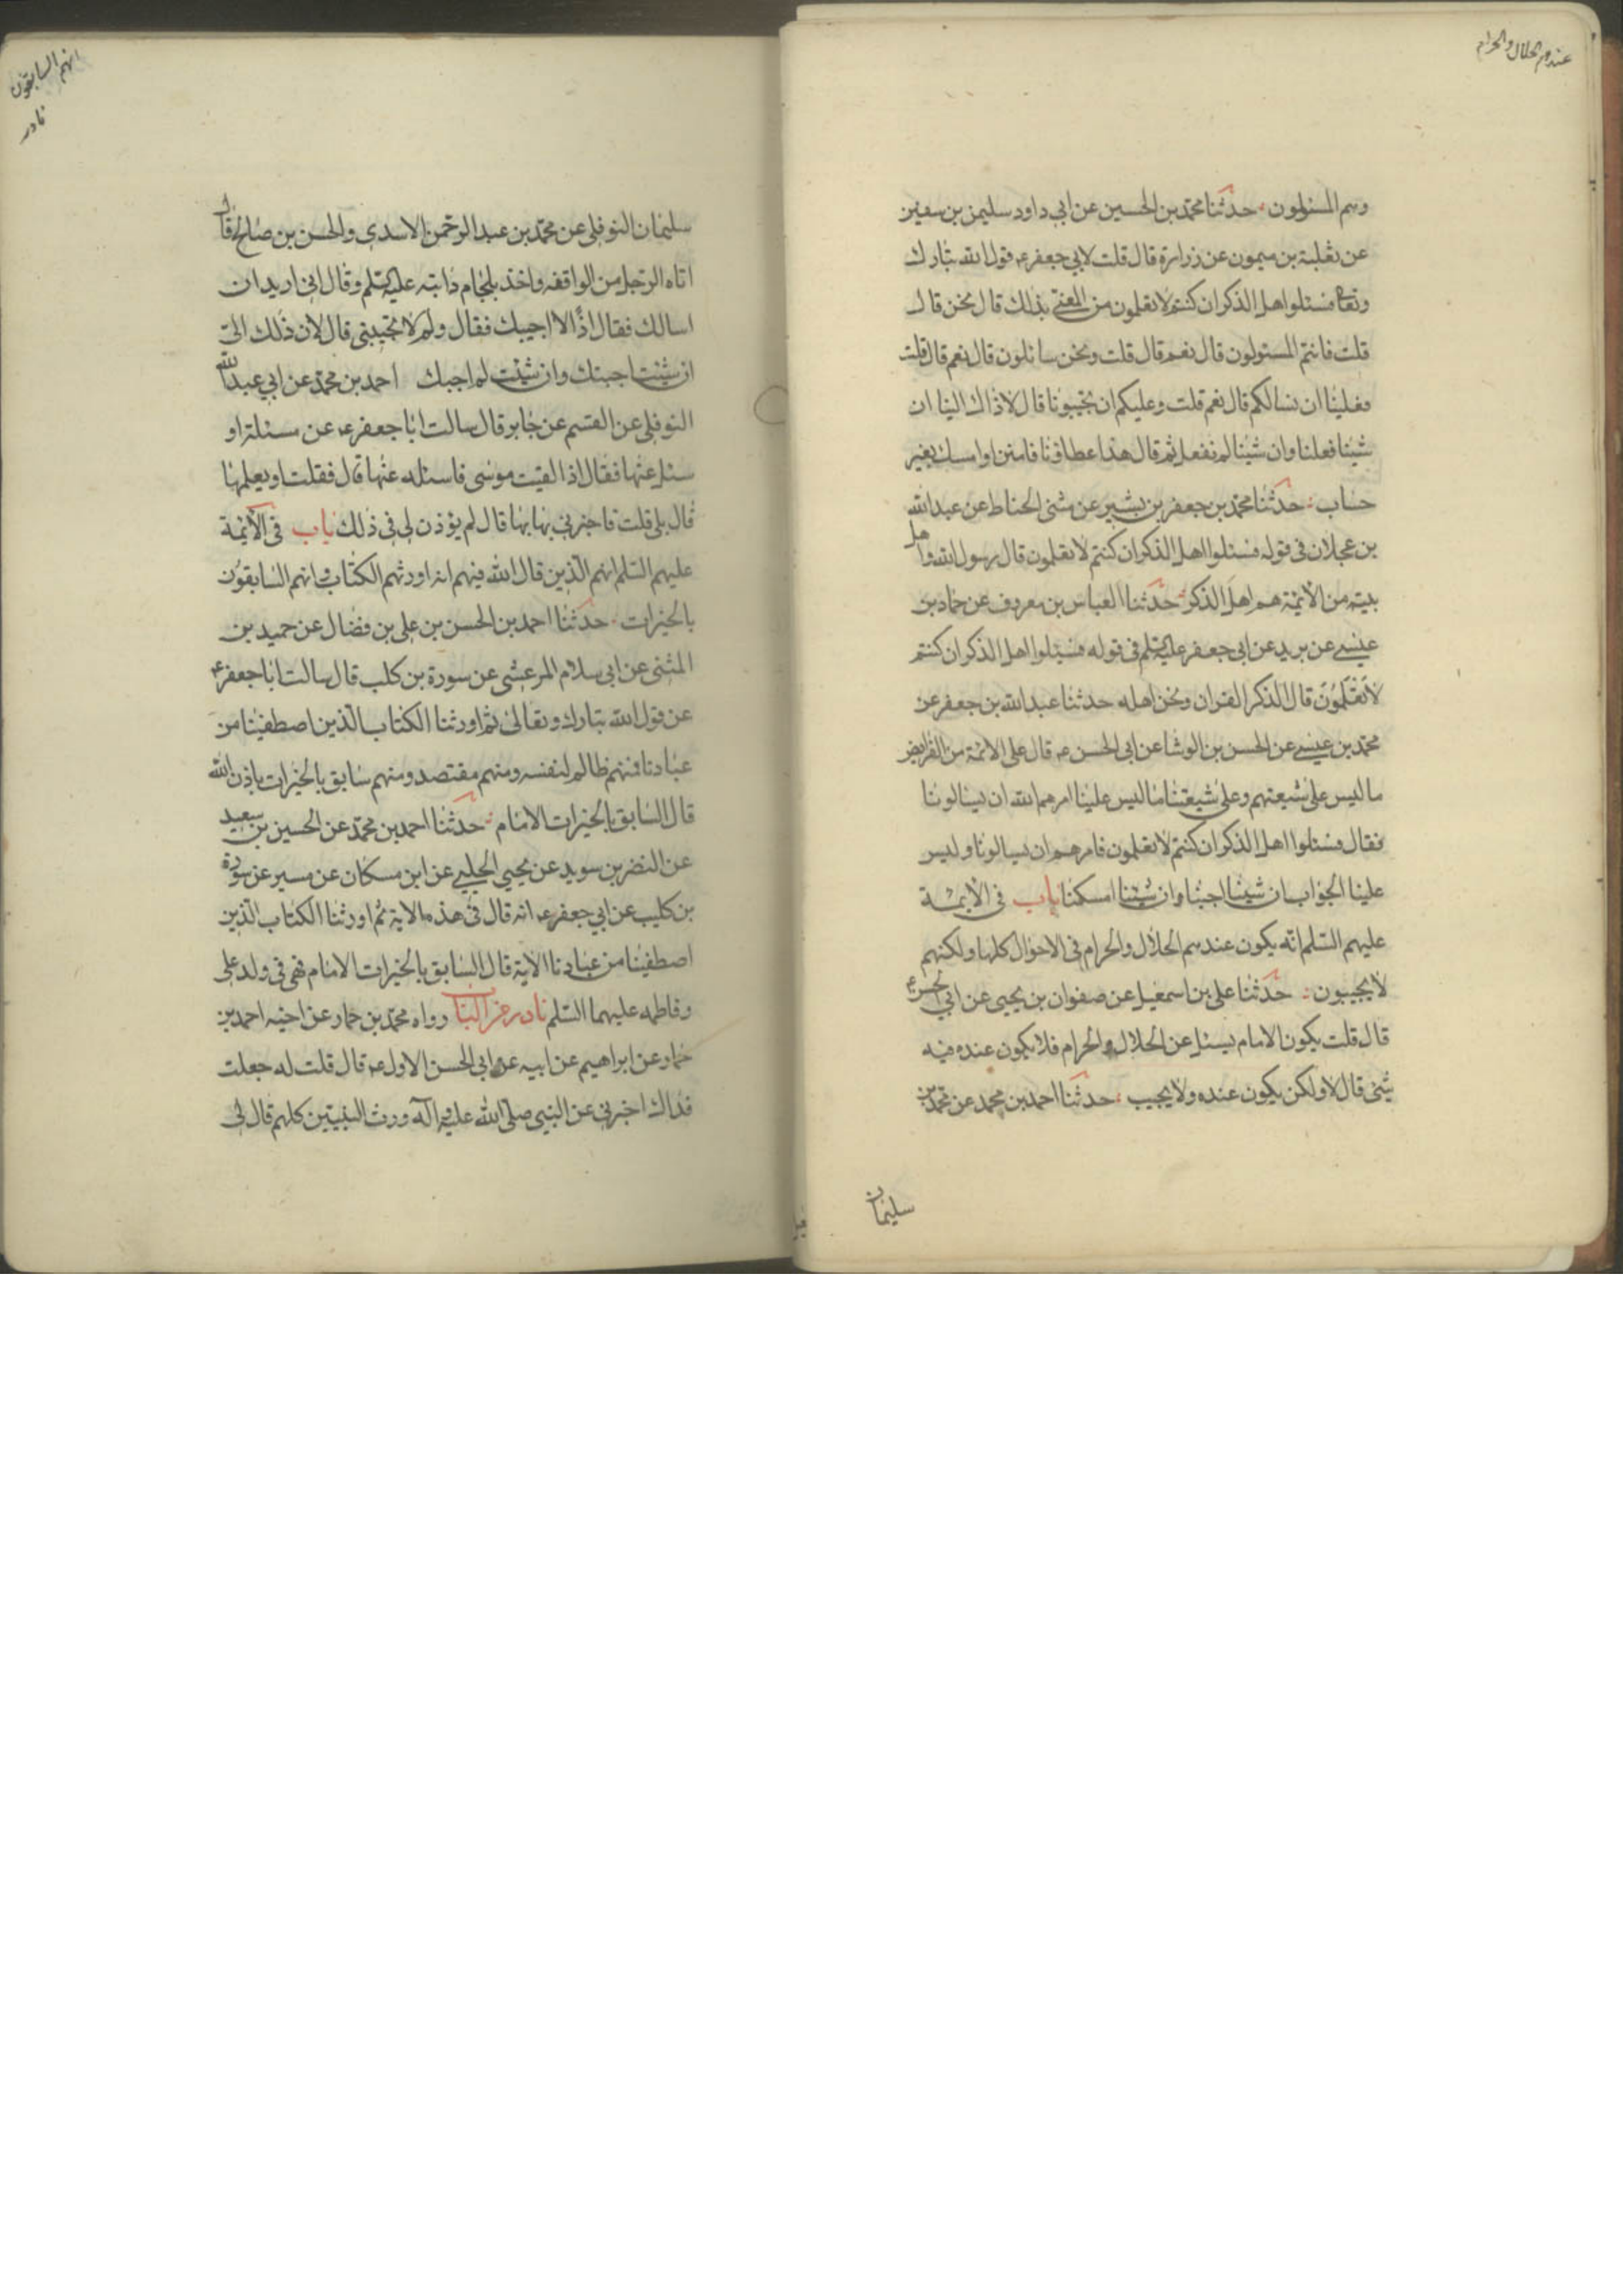 عندهم الحلال والحرام
وهم المسئولون حدثنا محمد بن الحسين عن ابي داود سليمن بن سفين
عن ثعلبة بن ميمون عن زرارة قال قلت لابي جعفر ع قول الله تبارك
وتعالى فسئلوا اهل الذكر ان كنتم لا تعلمون من المعني بذلك قال نحن قال
قلت فانتم المسئولون قال نعم قال قلت ونحن سائلون قال نعم قال قلت
فعلينا ان نسالكم قال نعم قلت وعليكم ان تجيبونا قال لا ذاك الينا ان
شئنا فعلنا وان شئنا لم نفعل ثم قال هذا عطاؤنا فامنن او امسك بغير
حساب حدثنا محمد بن جعفر بن بشير عن مثنى الحناط عن عبدالله
بن عجلان في قوله فسئلوا اهل الذكر ان كنتم لا تعلمون قال رسول الله واهل
بيته من الائمة هم اهل الذكر حدثنا العباس بن معروف عن حماد بن
عيسى عن بريد عن ابي جعفر عليه السلم في قوله فسئلوا اهل الذكر ان كنتم
لا تعلمون قال الذكر القران ونحن اهله حدثنا عبد الله بن جعفر عن
محمد بن عيسى عن الحسن بن الوشا عن ابي الحسن ع قال على الائمة من الفرايض
ما ليس على شيعتهم وعلى شيعتنا ما ليس علينا امرهم الله ان يسالونا
فقال فسئلوا اهل الذكر ان كنتم لا تعلمون فامرهم ان يسالونا وليس
علينا الجواب ان شئنا اجبنا وان شئنا امسكنا باب في الائمة
عليهم السلم انه يكون عندهم الحلال والحرام في الاحوال كلها ولكنهم
لا يجيبون حدثنا علي بن اسمعيل عن صفوان بن يحيى عن ابي الحسن ع
قال قلت يكون الامام يسئل عن الحلال والحرام فلا يكون عنده فيه
شئ قال لا ولكن يكون عنده ولا يجيب حدثنا احمد بن محمد عن محمد بن
سليمان
انهم السابقون
نادر
سليمان النوفلي عن محمد بن عبد الرحمن الاسدي والحسن بن صالح قال
اتاه الرجل من الواقفه واخذ بلجام دابته عليه السلم وقال اني اريد ان
اسالك فقال اذا لا اجيبك فقال ولم لا تجيبني قال لان ذلك الي
ان شئت اجبتك وان شئت لم اجبك احمد بن محمد عن ابي عبد الله
النوفلي عن القسم عن جابر قال سالت ابا جعفر ع عن مسئلة او
سئل عنها فقال اذا لقيت موسى فاسئله عنها قال فقلت او يعلمها
قال بلى قلت فاخبرني بها بها قال لم يؤذن لي في ذلك باب في الائمة
عليهم السلم انهم الذين قال الله فيهم انه اورثهم الكتاب وانهم السابقون
بالخيرات حدثنا احمد بن الحسن بن علي بن فضال عن حميد بن
المثنى عن ابي سلام المرعشي عن سورة بن كلب قال سالت ابا جعفر ع
عن قول الله تبارك وتعالى ثم اورثنا الكتاب الذين اصطفينا من
عبادنا فمنهم ظالم لنفسه ومنهم مقتصد ومنهم سابق بالخيرات باذن الله
قال السابق بالخيرات الامام حدثنا احمد بن محمد عن الحسين بن سعيد
عن النضر بن سويد عن يحيى الحلبي عن ابن مسكان عن مسير عن سورة
بن كليب عن ابي جعفر ع انه قال في هذه الاية ثم اورثنا الكتاب الذين
اصطفينا من عبادنا الاية قال السابق بالخيرات الامام فهي في ولد علي
وفاطمه عليهما السلم نادر من الباب رواه محمد بن حماد عن اخيه احمد بن
حماد عن ابراهيم عن ابيه عن ابي الحسن الاول ع قال قلت له جعلت
فداك اخبرني عن النبي صلى الله عليه وآله ورث النبيين كلهم قال لي